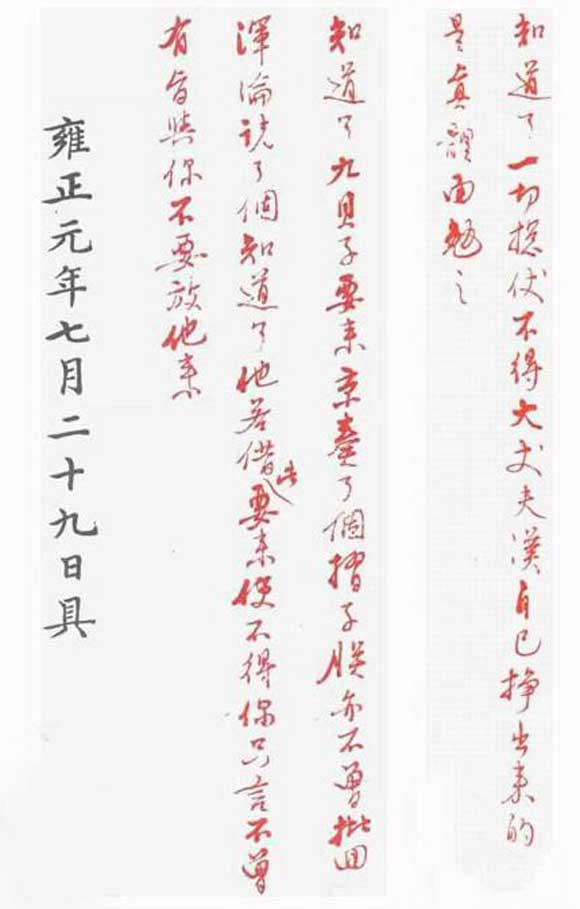 知道了一切總仗不得大丈夫漢自己掙出來的
是真體面勉之
知道了九貝子要來京奏了個摺子朕亦不曾批回
渾淪說了個知道了他若借此要來使不得你只言不曾
有旨與你不要放他來
雍正元年七月二十九日具